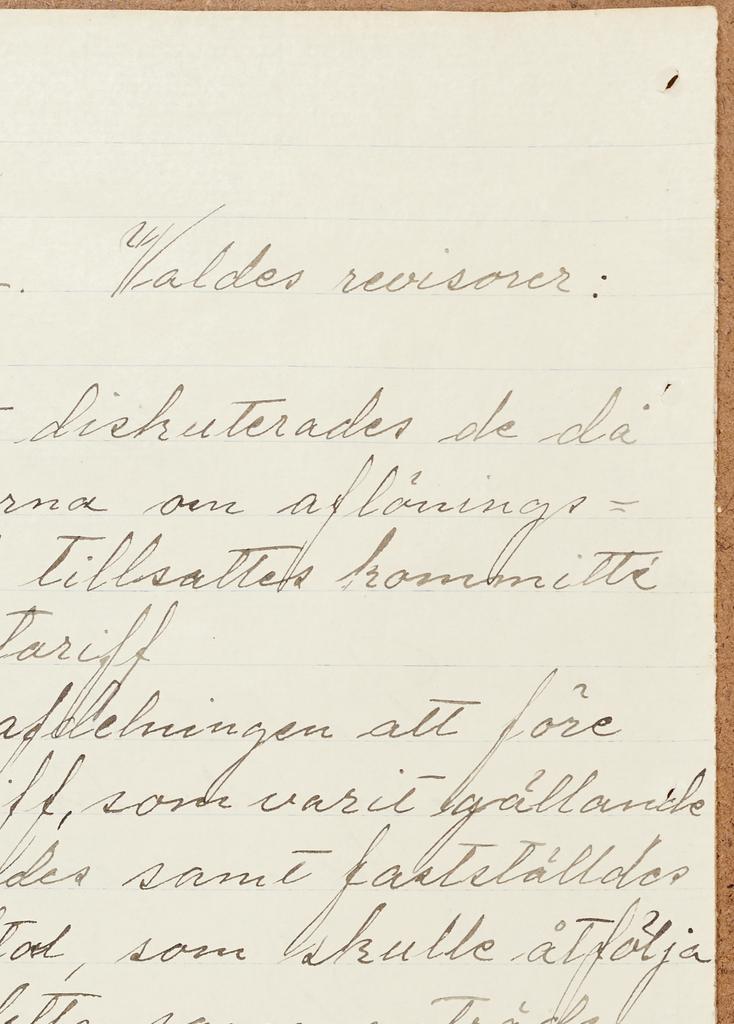 . Waldes revisorer:
diskuterades de då
rna om aflönings=
tillsattes kommitté
tariff
afdelningen att före
iff, som varit gällande
des samt fastställdes
tal, som skulle åtfölja